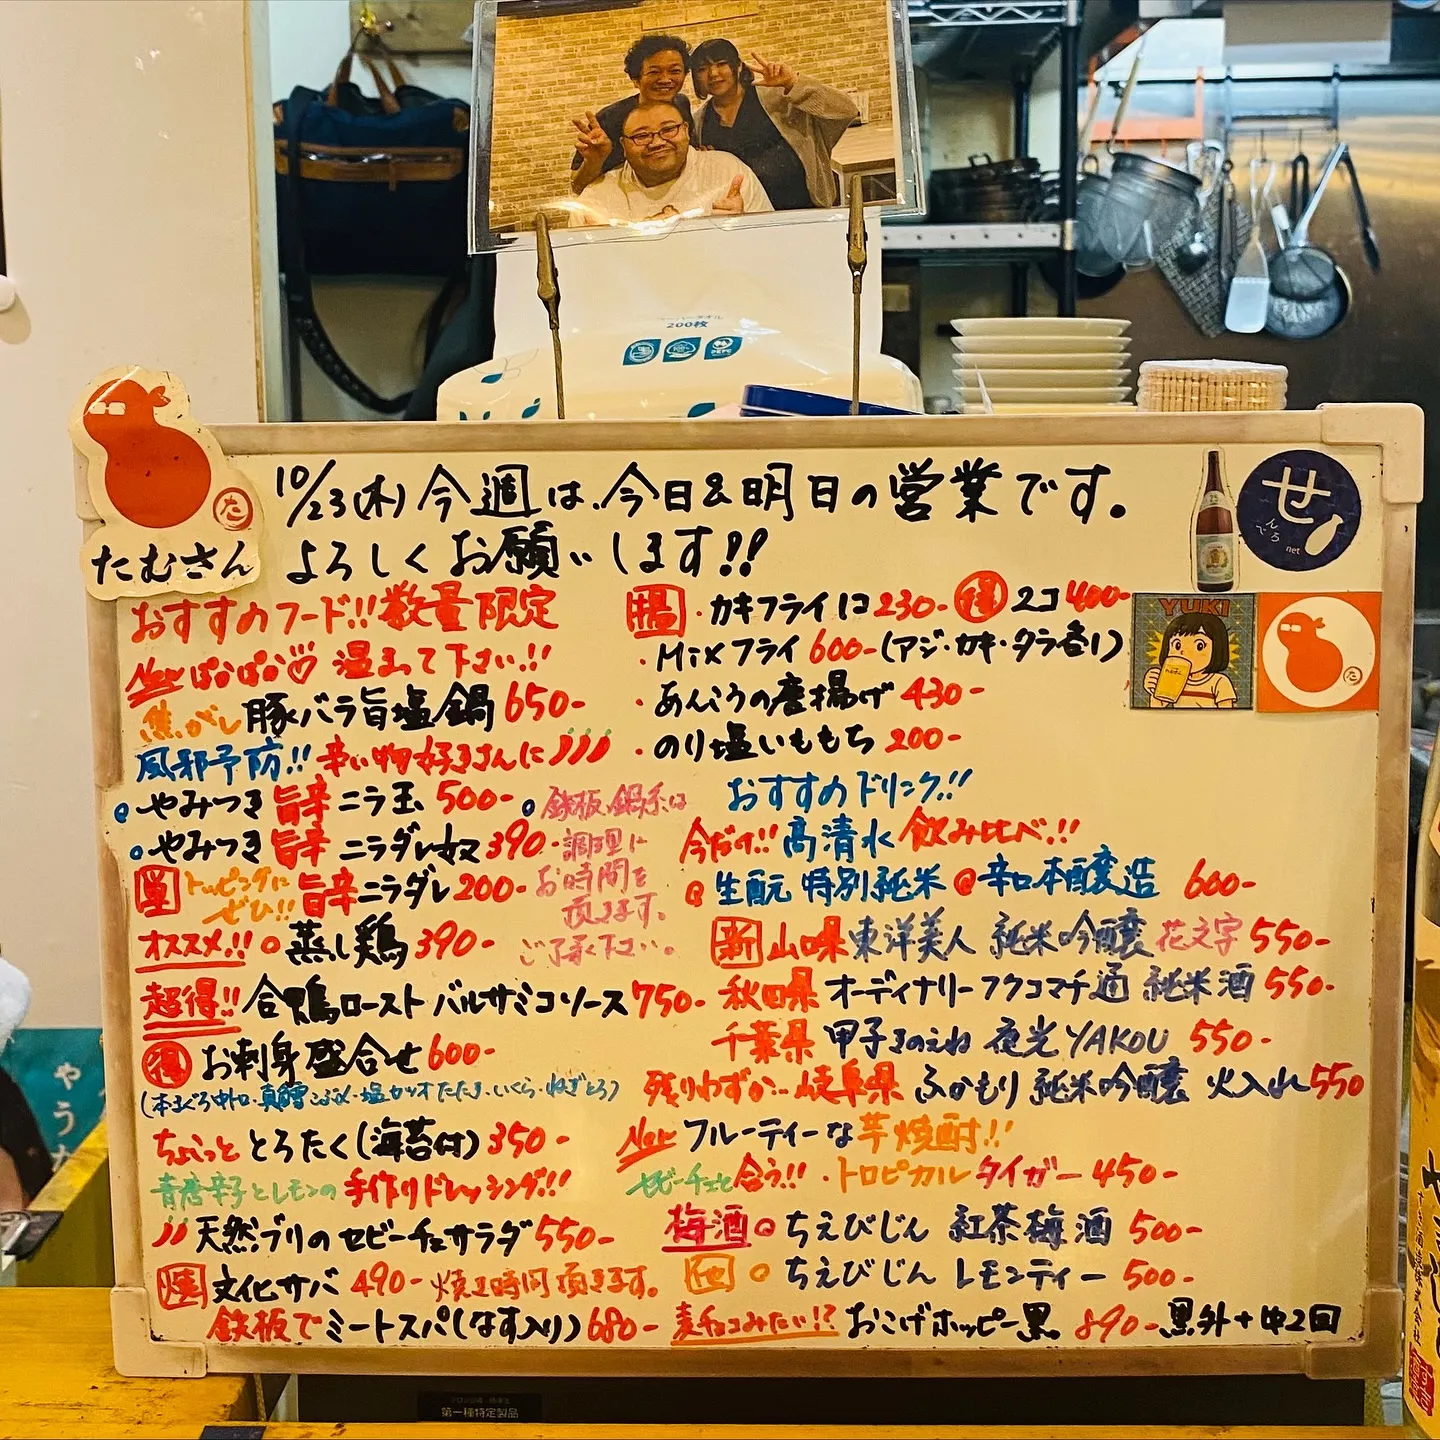 ペーパータオル
200枚
10/23(木)今週は、今日&明日の営業です。
よろしくお願いします!!
たむさん
せ
んでろ
net
YUKI
おすすめフード!!数量限定
New ぽかぽか♡温まって下さい!!
焦がし豚バラ旨塩鍋 650-
風邪予防!!辛い物好きさんに
やみつき旨辛ニラ玉 500-
やみつき旨辛ニラダレ奴 390-
単 トッピングにぜひ!! 旨辛ニラダレ 200-
鉄板、鍋系は
調理に
お時間を
頂きます。
ご了承下さい。
オススメ!! 蒸し鶏 390-
超得!! 合鴨ロースト バルサミコソース 750-
得 お刺身盛合せ 600-
(本まぐろ中トロ・真鯛こぶ〆・塩カツオたたき・いくら・ねぎとろ)
ちょこっと とろたく(海苔付) 350-
青唐辛子とレモンの手作りドレッシング!!
天然ブリのセビーチェサラダ 550-
焼 文化サバ 490- 焼き時間頂きます。
鉄板でミートスパ(なす入り) 680-
揚・カキフライ1コ230- 得 2コ400-
・Mixフライ 600-(アジ・カキ・タラ香り)
・あんこうの唐揚げ 430-
・のり塩いももち 200-
おすすめドリンク!!
今だけ!!高清水 飲み比べ!!
生酛 特別純米 辛口本醸造 600-
新 山口県 東洋美人 純米吟醸 花文字 550-
秋田県 オーディナリーフクコマチ通 純米酒 550-
千葉県 甲子きのえね 夜光 YAKOU 550-
残りわずか… 岐阜県 ふかもり 純米吟醸 火入れ 550
New フルーティーな芋焼酎!!
セビーチェと合う!!・トロピカルタイガー 450-
梅酒 ちえびじん 紅茶梅酒 500-
他 ちえびじん レモンティー 500-
麦チョコみたい!? おこげホッピー黒 890- 黒外+中2回
やうか
第一種特定製品